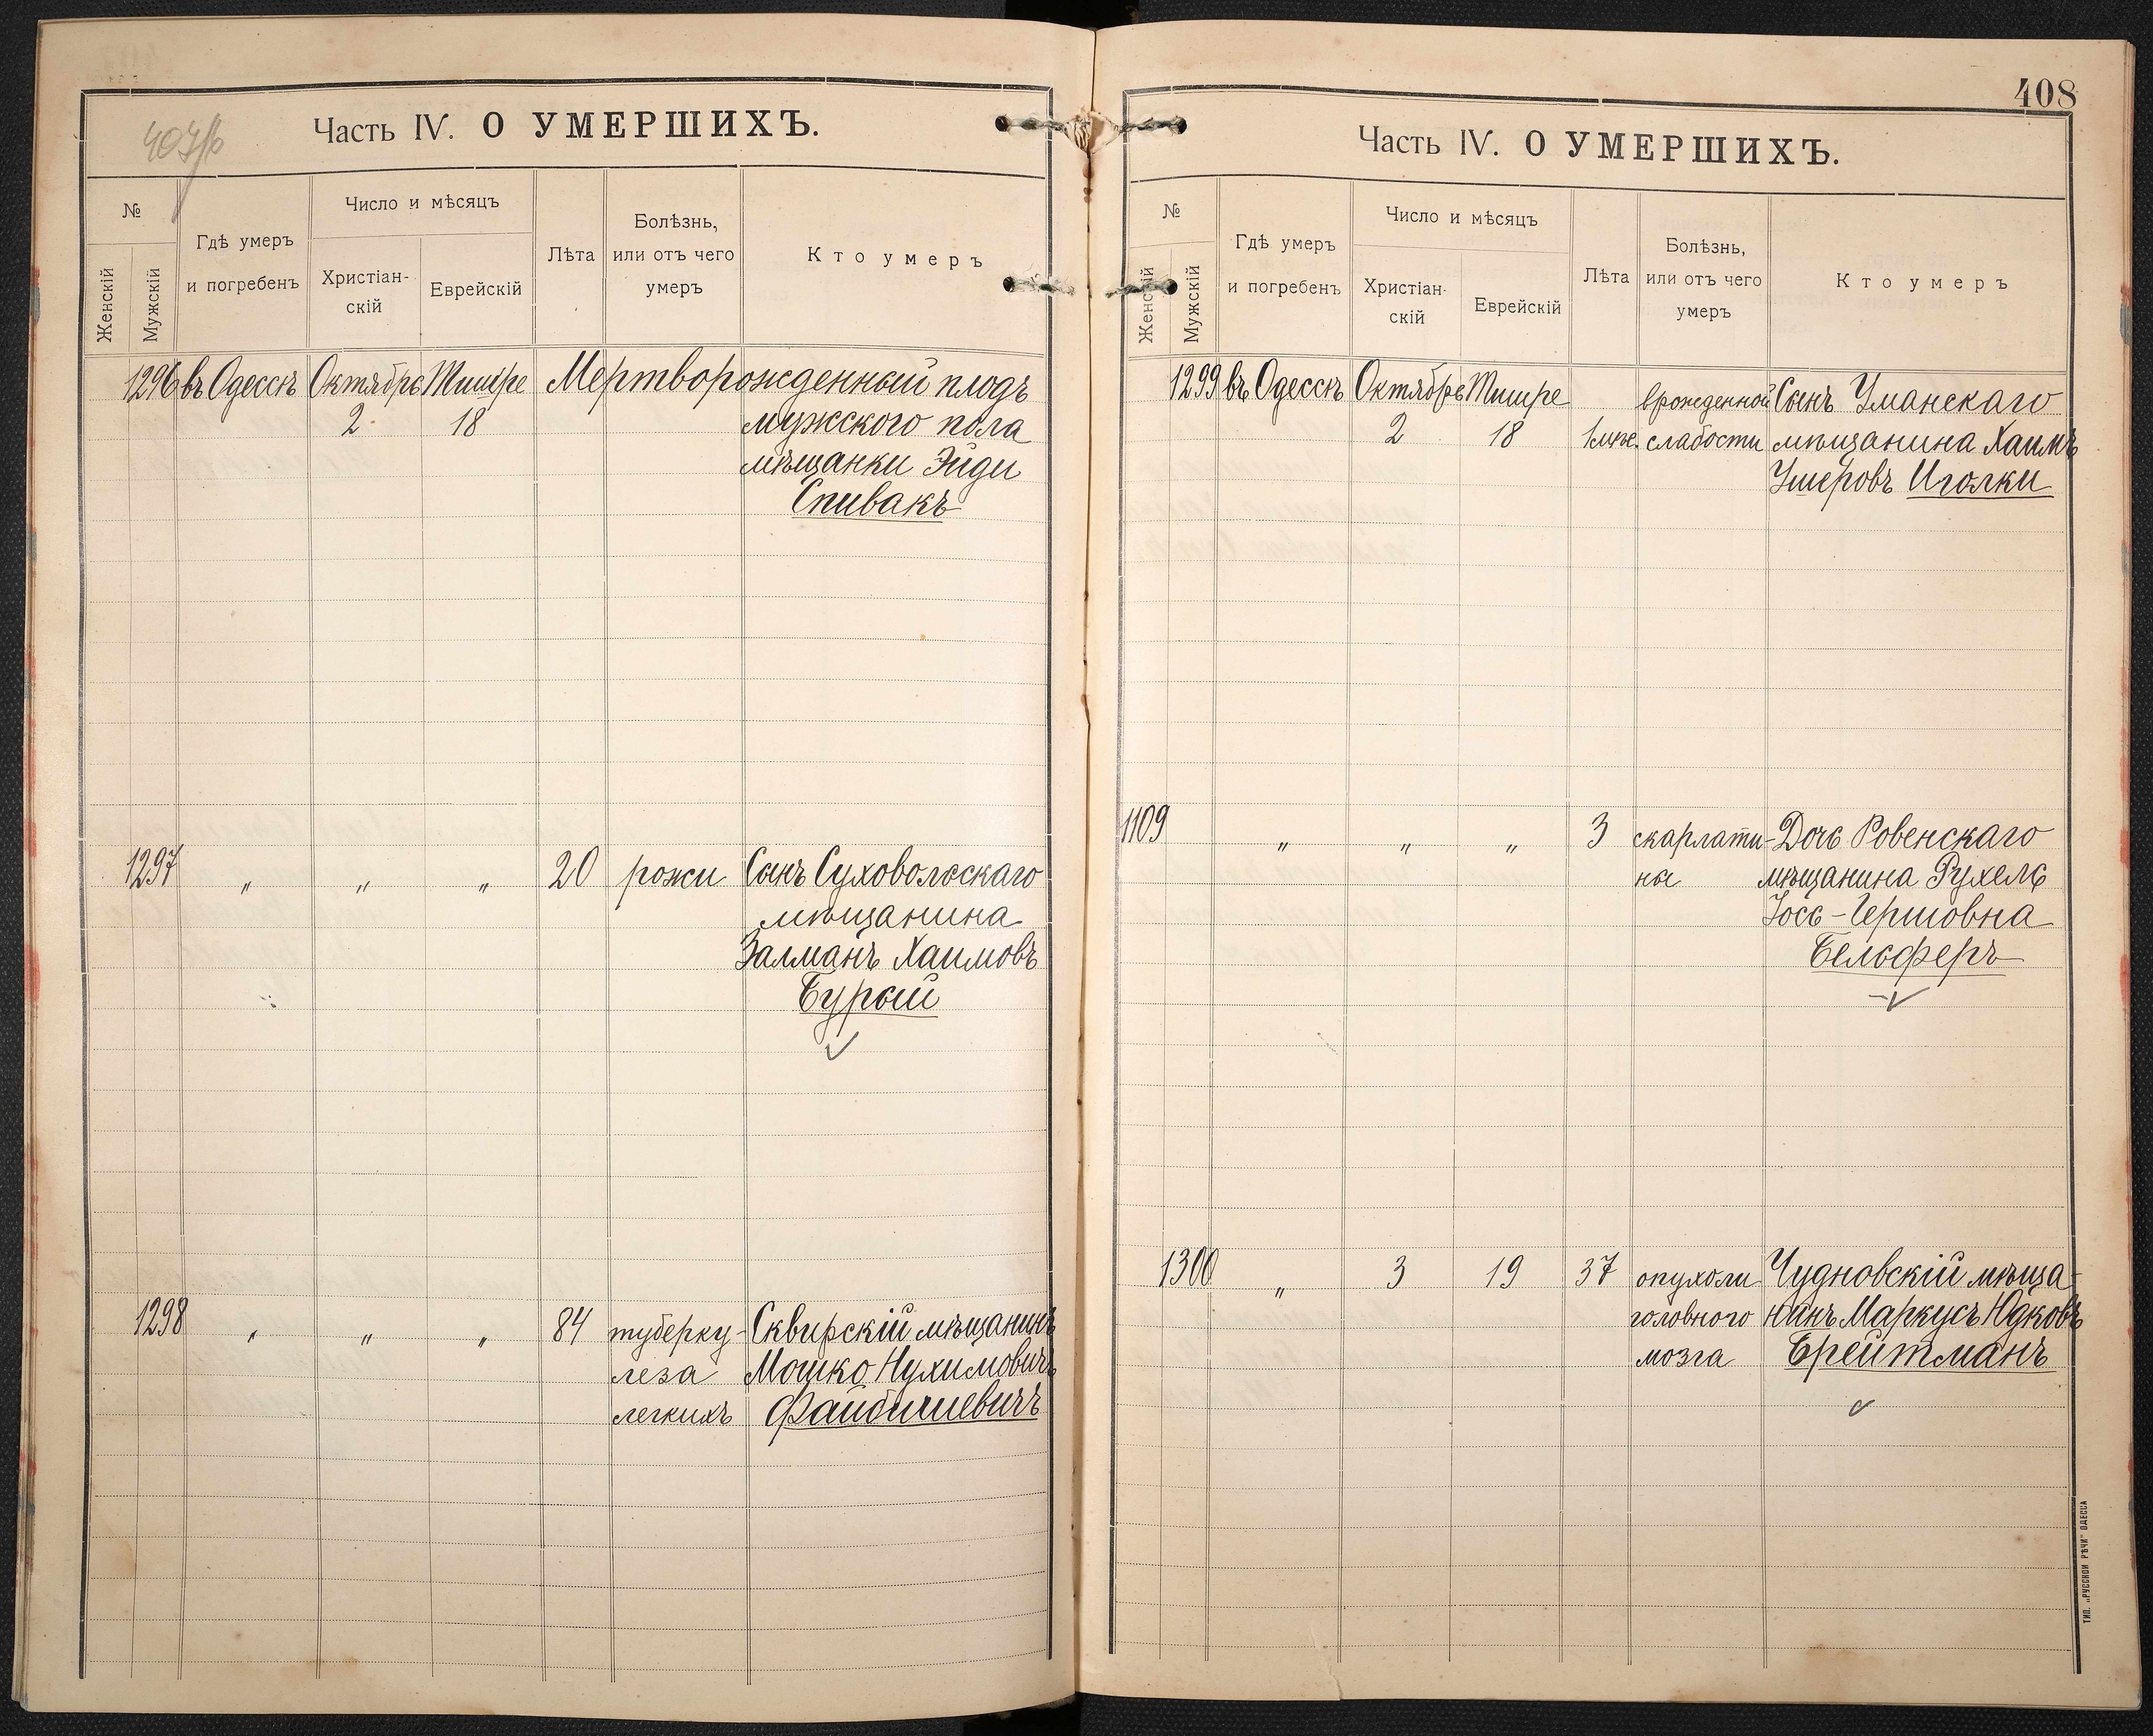 407/б
Часть IV. О УМЕРШИХЪ.
№
Женскій
Мужскій
Гдѣ умеръ
и погребенъ
Число и мѣсяцъ
Христіан-
скій
Еврейскій
Лѣта
Болѣзнь,
или отъ чего
умеръ
Кто умеръ
1296 въ Одессѣ Октябрь Тишре Мертворожденный плодъ
2 18 мужского пола
мѣщанки Эйди
Спивакъ
1297 " " " 20 рожи Сынъ Суховольскаго
мѣщанина
Залманъ Хаимовъ
Бурый
1298 " " " 84 туберку- Сквирскій мѣщанинъ
леза Мошко Нухимовичъ
легкихъ Файбишевичъ
408
Часть IV. О УМЕРШИХЪ.
№
Женскій
Мужскій
Гдѣ умеръ
и погребенъ
Число и мѣсяцъ
Христіан-
скій
Еврейскій
Лѣта
Болѣзнь,
или отъ чего
умеръ
Кто умеръ
1299 въ Одессѣ Октябрь Тишре врожденной Сынъ Уманскаго
2 18 1 мѣс. слабости мѣщанина Хаимъ
Ушеровъ Иголки
1109 " " " 3 скарлати- Дочь Ровенскаго
ны мѣщанина Рухель
Іось-Гершовна
Бельферъ
1300 " 3 19 37 опухоли Чудновскій мѣща-
головного нинъ Маркусъ Юдковъ
мозга Брейтманъ
ТИП. „РУССКОЙ РѢЧИ" ОДЕССА